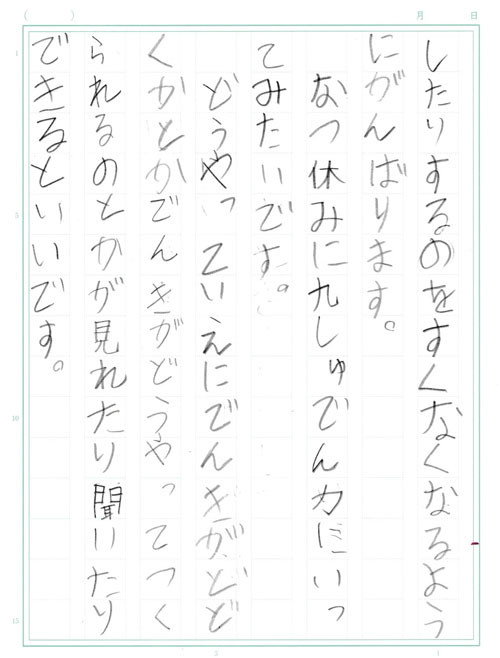 したりするのをすくなくなるよう
にがんばります。
なつ休みに九しゅでん力にいっ
てみたいです。
どうやってい​えにでんきがとど
くかとかでんきがどうやってつく
られるのとかが見れたり聞いたり
できるといいです。
月 日
( )
1
5
10
15
1
2